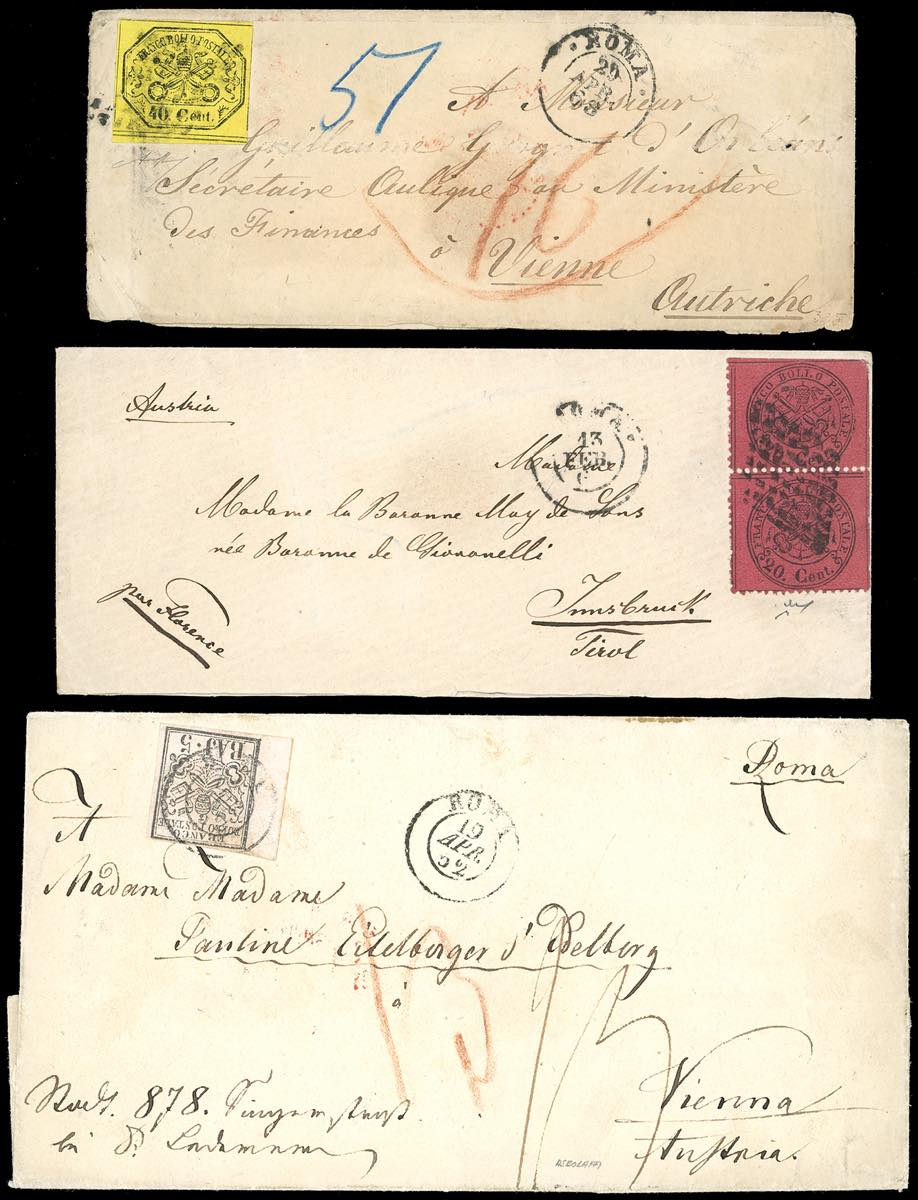 FRANCO BOLLO POSTALE
40. Cent.
57
ROMA
29
APR.
68
A Monsieur
Guillaume d'Orléans
Secrétaire Aulique au Ministère
des Finances
à Vienne
Autriche
Austria
13
FEB.
FRANCO BOLLO POSTALE
20 Cent.
FRANCO BOLLO POSTALE
20. Cent.
Madame
Madame la Baronne May de Sons
née Baronne de Giovanelli
par Florence
Innsbruck
Tirol
BAJ. 5
FRANCO
BOLLO POSTALE
ROMA
19
APR.
52
Roma
A
Madame Madame
Pauline Eitelberger d'Edelberg
à
Stadt. 878.
Vienna
Austria.
ASBOLAFFI